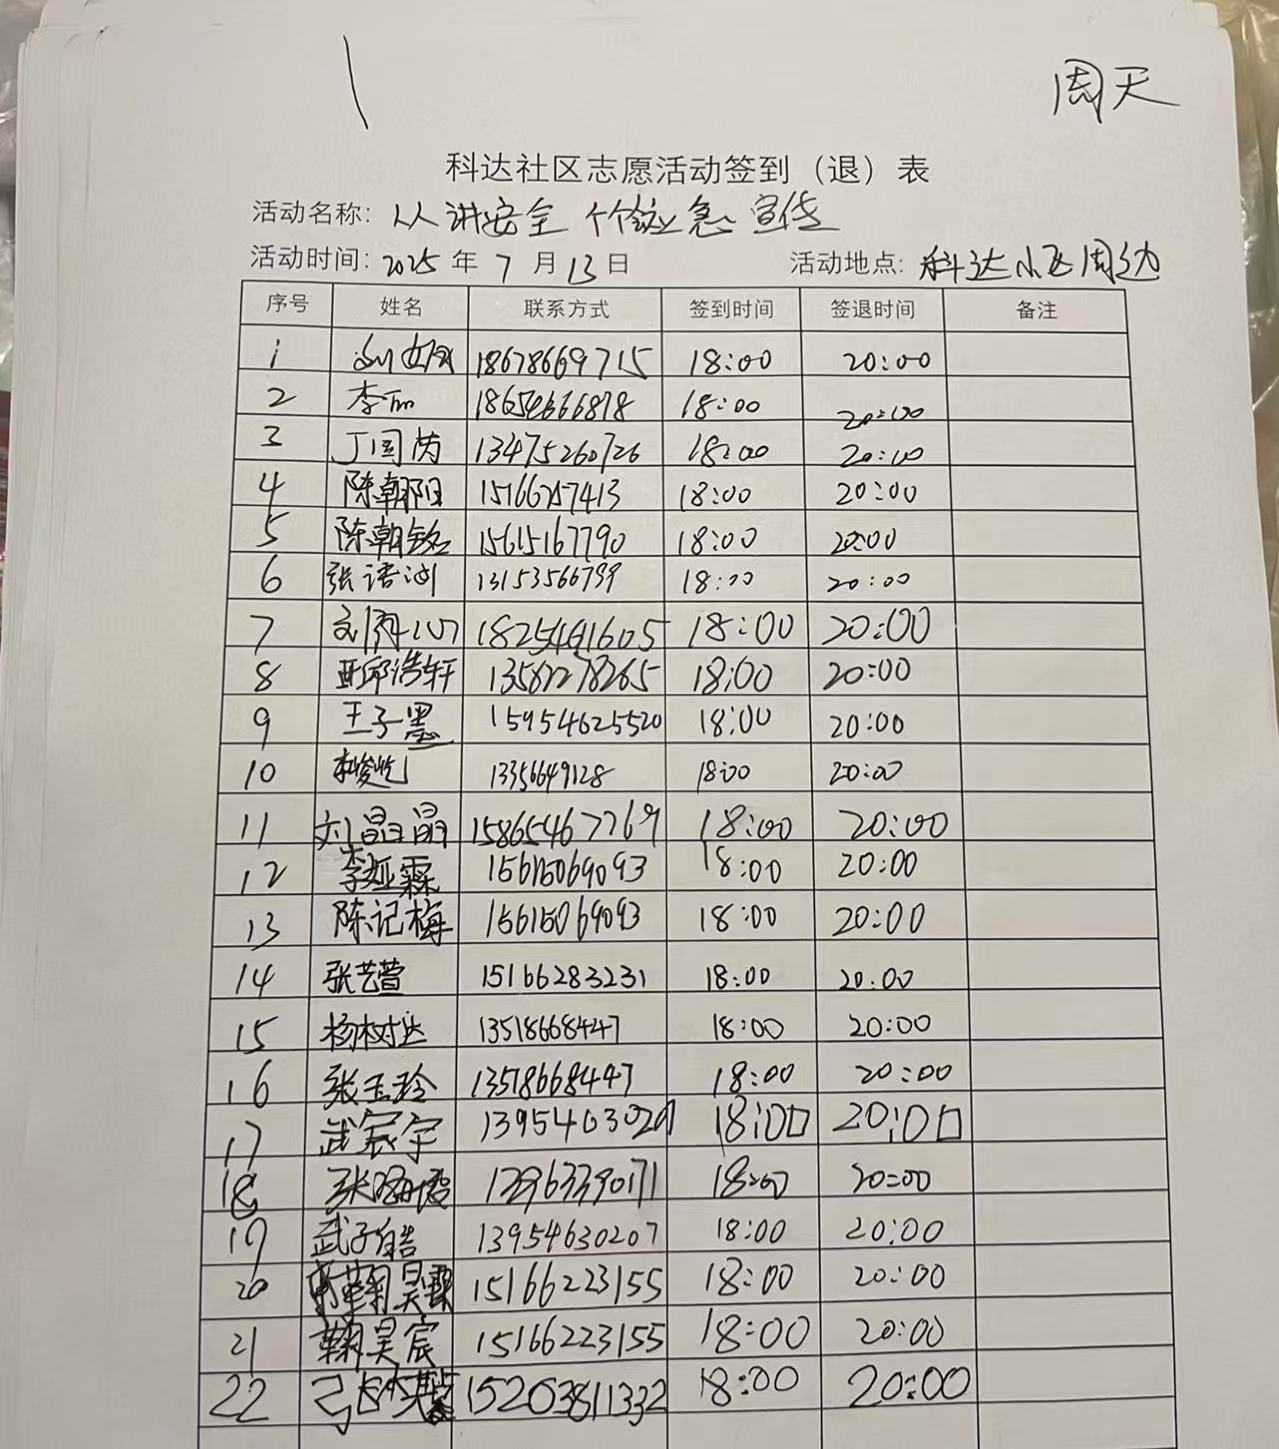 周天
科达社区志愿活动签到（退）表
活动名称：人人讲安全 个个会应急 宣传
活动时间：2025 年 7 月 13 日 活动地点：科达小区周边
序号 姓名 联系方式 签到时间 签退时间 备注
1 18678669715 18:00 20:00
2 李丽 18:00 20:00
3 丁国芮 13475260726 18:00 20:00
4 陈朝阳 15166257413 18:00 20:00
5 陈朝铭 15615167790 18:00 20:00
6 张语 13153566799 18:00 20:00
7 18254691605 18:00 20:00
8 浩轩 13561278265 18:00 20:00
9 王子墨 15954625520 18:00 20:00
10 13356649128 18:00 20:00
11 刘晶晶 15865467769 18:00 20:00
12 李娅霖 15615069093 18:00 20:00
13 陈记梅 15615069093 18:00 20:00
14 张艺萱 15166283231 18:00 20:00
15 杨树达 13518668447 18:00 20:00
16 张玉玲 13518668447 18:00 20:00
17 武宸宇 18:00 20:00
18 张 18:00 20:00
19 武子皓 13954630207 18:00 20:00
20 鞠昊霖 15166223155 18:00 20:00
21 鞠昊宸 15166223155 18:00 20:00
22 15263811332 18:00 20:00